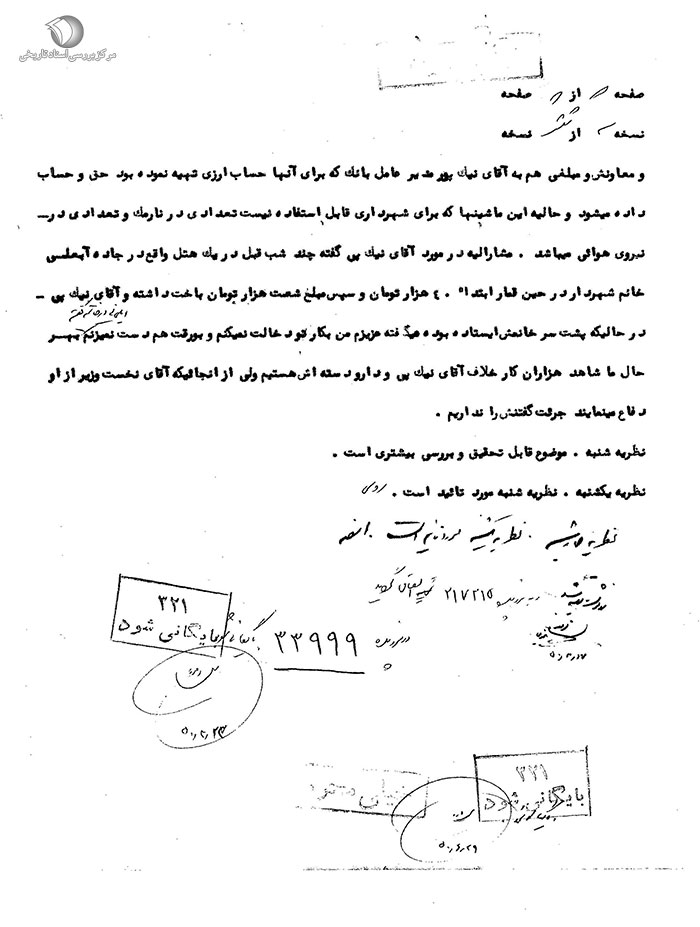 مرکز بررسی اسناد تاریخی
صفحه از صفحه
نسخه از شش نسخه
و معاونش و مبلغی هم به آقای نیک پور مدیر عامل بانک که برای آنها حساب ارزی تهیه نموده بود حق و حساب
داده میشود و حالیه این ماشینها که برای شهرداری قابل استفاده نیست تعدادی در نارمک و تعدادی در ــ
نیروی هوائی میباشد . مشارالیه در مورد آقای نیک پی گفته چند شب قبل در یک هتل واقع در جاده آبعلی
خانم شهردار در حین قمار ابتدا" ۴۰ هزار تومان و سپس مبلغ شصت هزار تومان باخت داشته و آقای نیک پی ــ
در حالیکه پشت سر خانمش ایستاده بوده میگفته عزیزم من بکار تو دخالت نمیکنم و بورقت هم دست نمیزنم بهر
حال ما شاهد هزاران کار خلاف آقای نیک پی و دار و دسته اش هستیم ولی از انجائیکه آقای نخست وزیر از او
دفاع مینمایند جرئت گفتنش را نداریم .
نظریه شنبه . موضوع قابل تحقیق و بررسی بیشتری است .
نظریه یکشنبه . نظریه شنبه مورد تائید است .
نظریه سه شنبه . نظریه یکشنبه مورد تائید است .
۲۱۷۲۱۵
در پرونده ۳۳۹۹۹ بایگانی شود
۳۲۱
بایگانی شود
۳۲۱